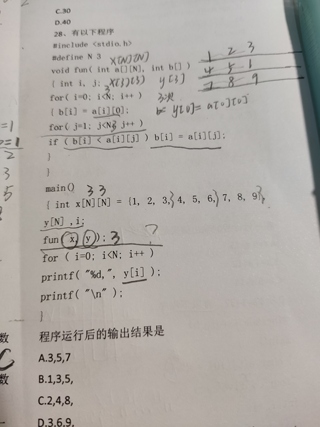 C.30
D.40
28、有以下程序
#include <stdio.h>
#define N 3 X[N][N]
void fun( int a[][N], int b[] )
{ int i, j; X[3][3] y[3]
for( i=0; i<N; i++ )
{ b[i] = a[i][0]; y[0]=a[0][0]
for( j=1; j<N; j++ )
if ( b[i] < a[i][j] ) b[i] = a[i][j];
}
}
main() 3 3
{ int x[N][N] = {1, 2, 3, 4, 5, 6, 7, 8, 9},
y[N] ,i;
fun( x, y ); 3 ?
for ( i=0; i<N; i++ )
printf( "%d,", y[i] );
printf( "\n" );
}
程序运行后的输出结果是
A.3,5,7
B.1,3,5,
C.2,4,8,
D.3,6,9,
1 2 3
4 5 6
7 8 9
数
数
数